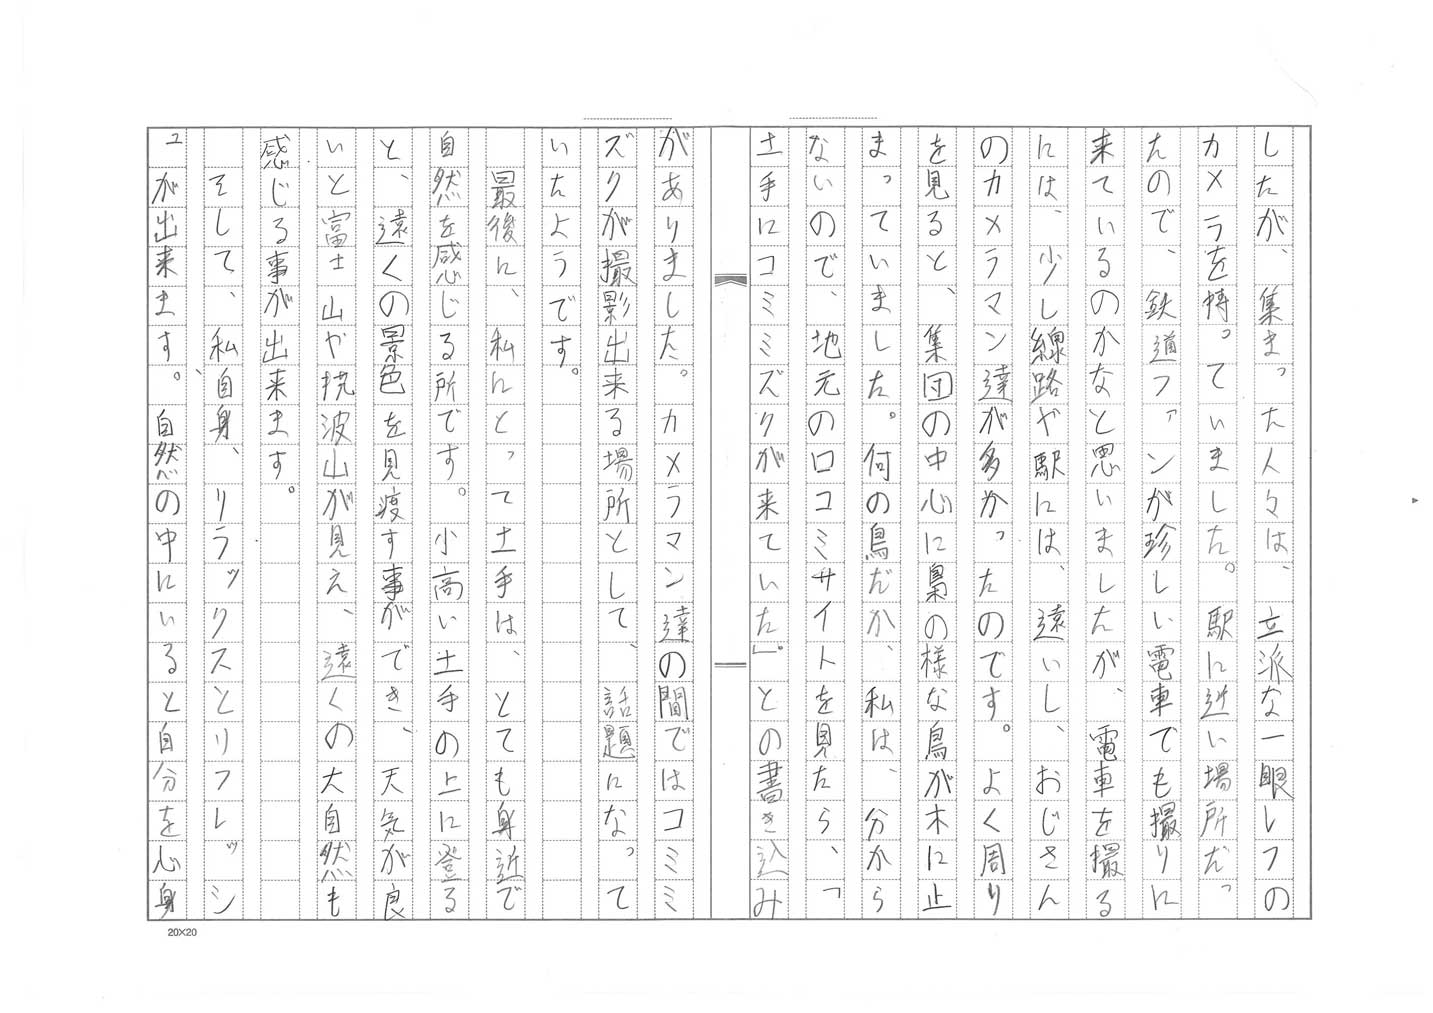 したが、集まった人々は、立派な一眼レフの
カメラを持っていました。駅に近い場所だっ
たので、鉄道ファンが珍しい電車でも撮りに
来ているのかなと思いましたが、電車を撮る
には、少し線路や駅には、遠いし、おじさん
のカメラマン達が多かったのです。よく周り
を見ると、集団の中心に梟の様な鳥が木に止
まっていました。何の鳥だか、私は、分から
ないので、地元の口コミサイトを見たら、「
土手にコミミズクが来ていた」。との書き込み
がありました。カメラマン達の間ではコミミ
ズクが撮影出来る場所として、話題になって
いたようです。
最後に、私にとって土手は、とても身近で
自然を感じる所です。小高い土手の上に登る
と、遠くの景色を見渡す事ができ、天気が良
いと富士山や筑波山が見え、遠くの大自然も
感じる事が出来ます。
そして、私自身、リラックスとリフレッシ
ュが出来ます。自然の中にいると自分を心身
20×20